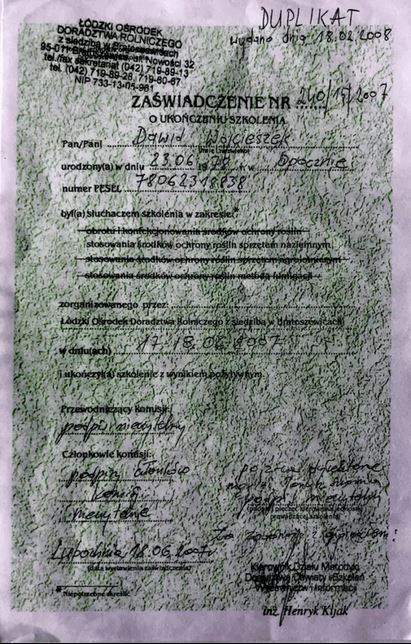 DUPLIKAT
wydano dnia 18.02.2008
ŁÓDZKI OŚRODEK
DORADZTWA ROLNICZEGO
z siedzibą w Bratoszewicach
95-011 Bratoszewice, ul. Nowości 32
tel./fax sekretariat (042) 719-89-13
tel. (042) 719-89-28, 719-80-67
NIP 733-13-05-981
ZAŚWIADCZENIE NR 240/15/2007
O UKOŃCZENIU SZKOLENIA
Pan/Pani Dawid Wojcieszek
(imię i nazwisko)
urodzony(a) w dniu 23.06 1978 r. w Opocznie
numer PESEL
był(a) słuchaczem szkolenia w zakresie:*
obrotu i konfekcjonowania środków ochrony roślin
stosowania środków ochrony roślin sprzętem naziemnym
stosowania środków ochrony roślin sprzętem agrolotniczym
stosowania środków ochrony roślin metodą fumigacji
zorganizowanego przez:
Łódzki Ośrodek Doradztwa Rolniczego z siedzibą w Bratoszewicach
w dniu(ach) 17-18.06.2007
i ukończył(a) szkolenie z wynikiem pozytywnym.
Przewodniczący komisji:
podpis nieczytelny
Członkowie komisji:
podpisy członków
komisji
nieczytelne
podpis nieczytelny
(podpis i pieczęć kierownika jednostki
prowadzącej szkolenie)
Za zgodność z oryginałem:
18.06.2007r
(data wystawienia zaświadczenia)
* Niepotrzebne skreślić.
Kierownik Działu Metodyki
Doradztwa Oświaty i Szkoleń
Wydawnictw i Informacji
inż. Henryk Kijak